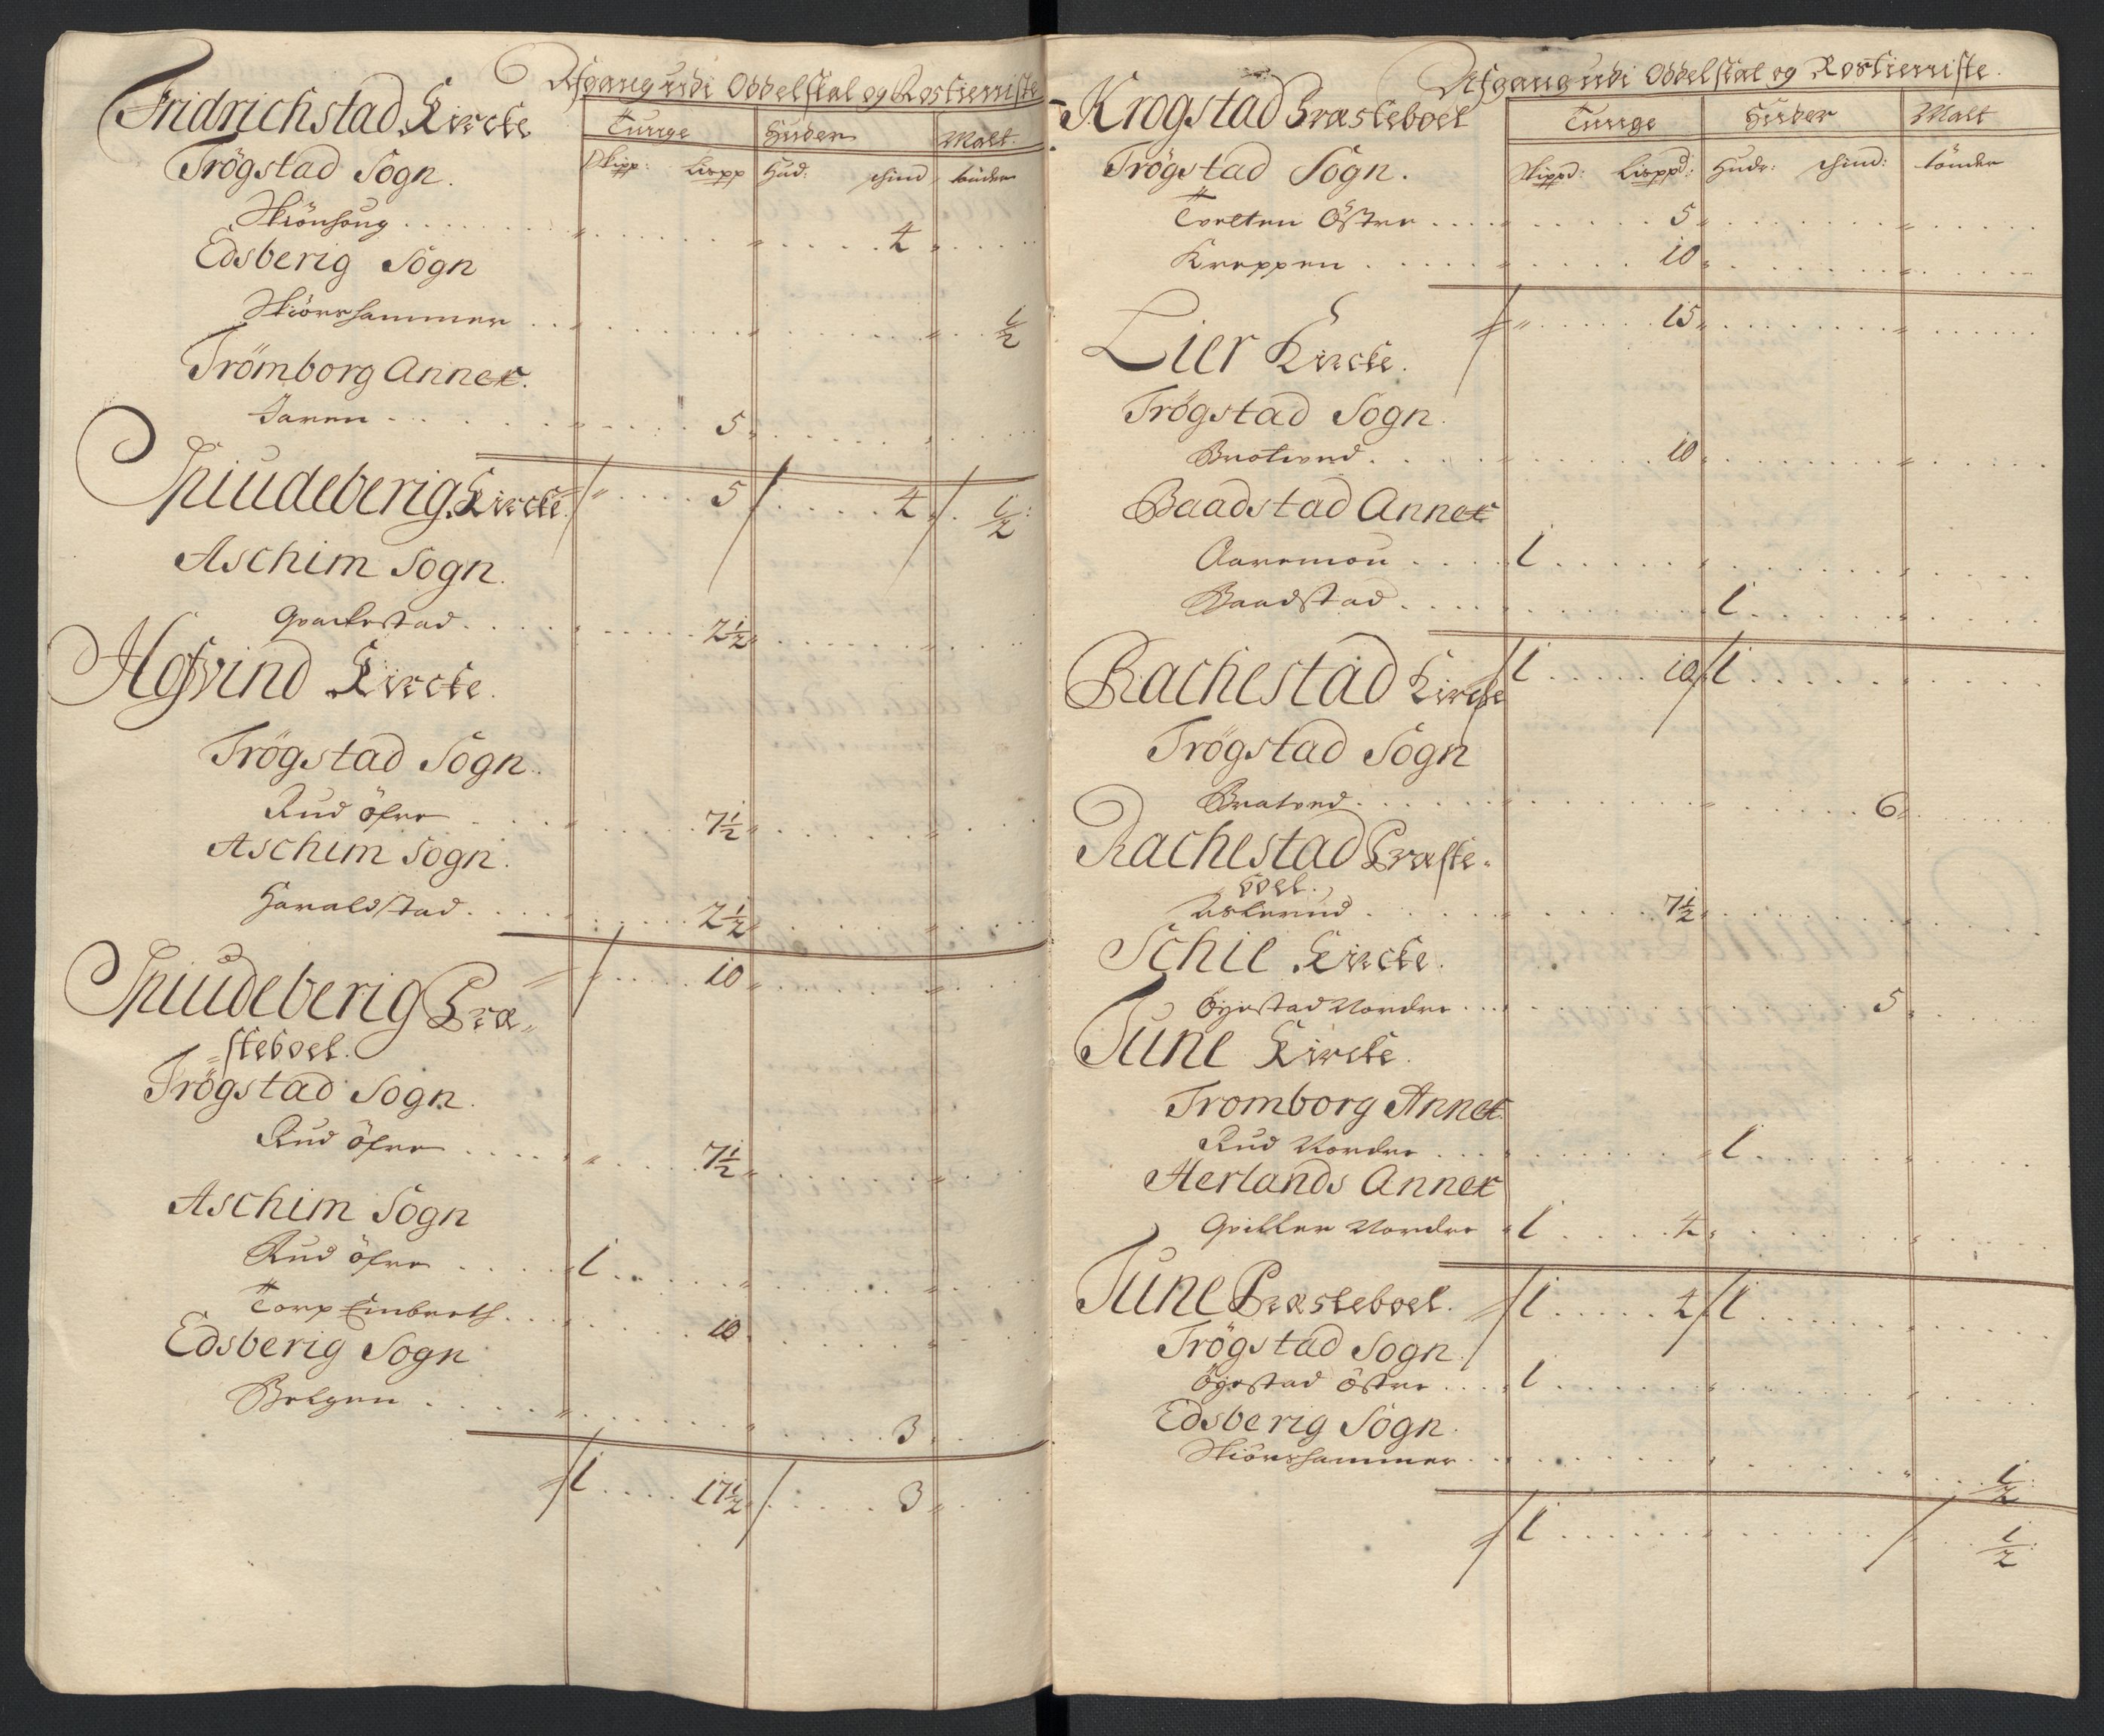 Afgang udi Oddelskat og Rostieniste
Fridrichstad Kircke
Tunge Huder Malt.
Skipp: Lispp Hud: skind tönder
Trögstad Sogn.
Skiönhoug 4
Edsberig Sogn
Skiörshammer ½
Trömborg Annex.
Jaren 5
5 4 ½
Spiudeberig Kircke
Aschim Sogn.
Qvackestad 2½
Hofvind Kircke.
Trögstad Sogn.
Rud öfre 7½
Aschim Sogn.
Haraldstad 2½
10
Spiudeberig Præ-
steboel.
Trögstad Sogn.
Rud öfre 7½
Aschim Sogn
Rud öfre 1
Torp Embreth 10
Edsberig Sogn
Bergen 3
1 17½ 3
Afgang udi Oddelskat og Rostieniste.
Krogstad Præsteboel
Tunge Huder Malt
Skippd: Lisppd: Hudr: skind: tönder
Trögstad Sogn.
Östre 5
Kreppen 10
15
Lier Kircke.
Trögstad Sogn.
Bratved 10
Baadstad Annex
Aaremou 1
Baadstad 1
1 10 1
Rachestad Kircke
Trögstad Sogn
Bratved 6
Rachestad Præste-
boel.
7½
Schie Kircke.
Öyestad Nordre 5
Tune Kircke.
Tromborg Annex
Rud Nordre 1
Herlands Annex
Nordre 1 4
1 4 1
Tune Præsteboel.
Trögstad Sogn
Öyestad östre 1
Edsberig Sogn.
Skiörshammer ½
1 ½